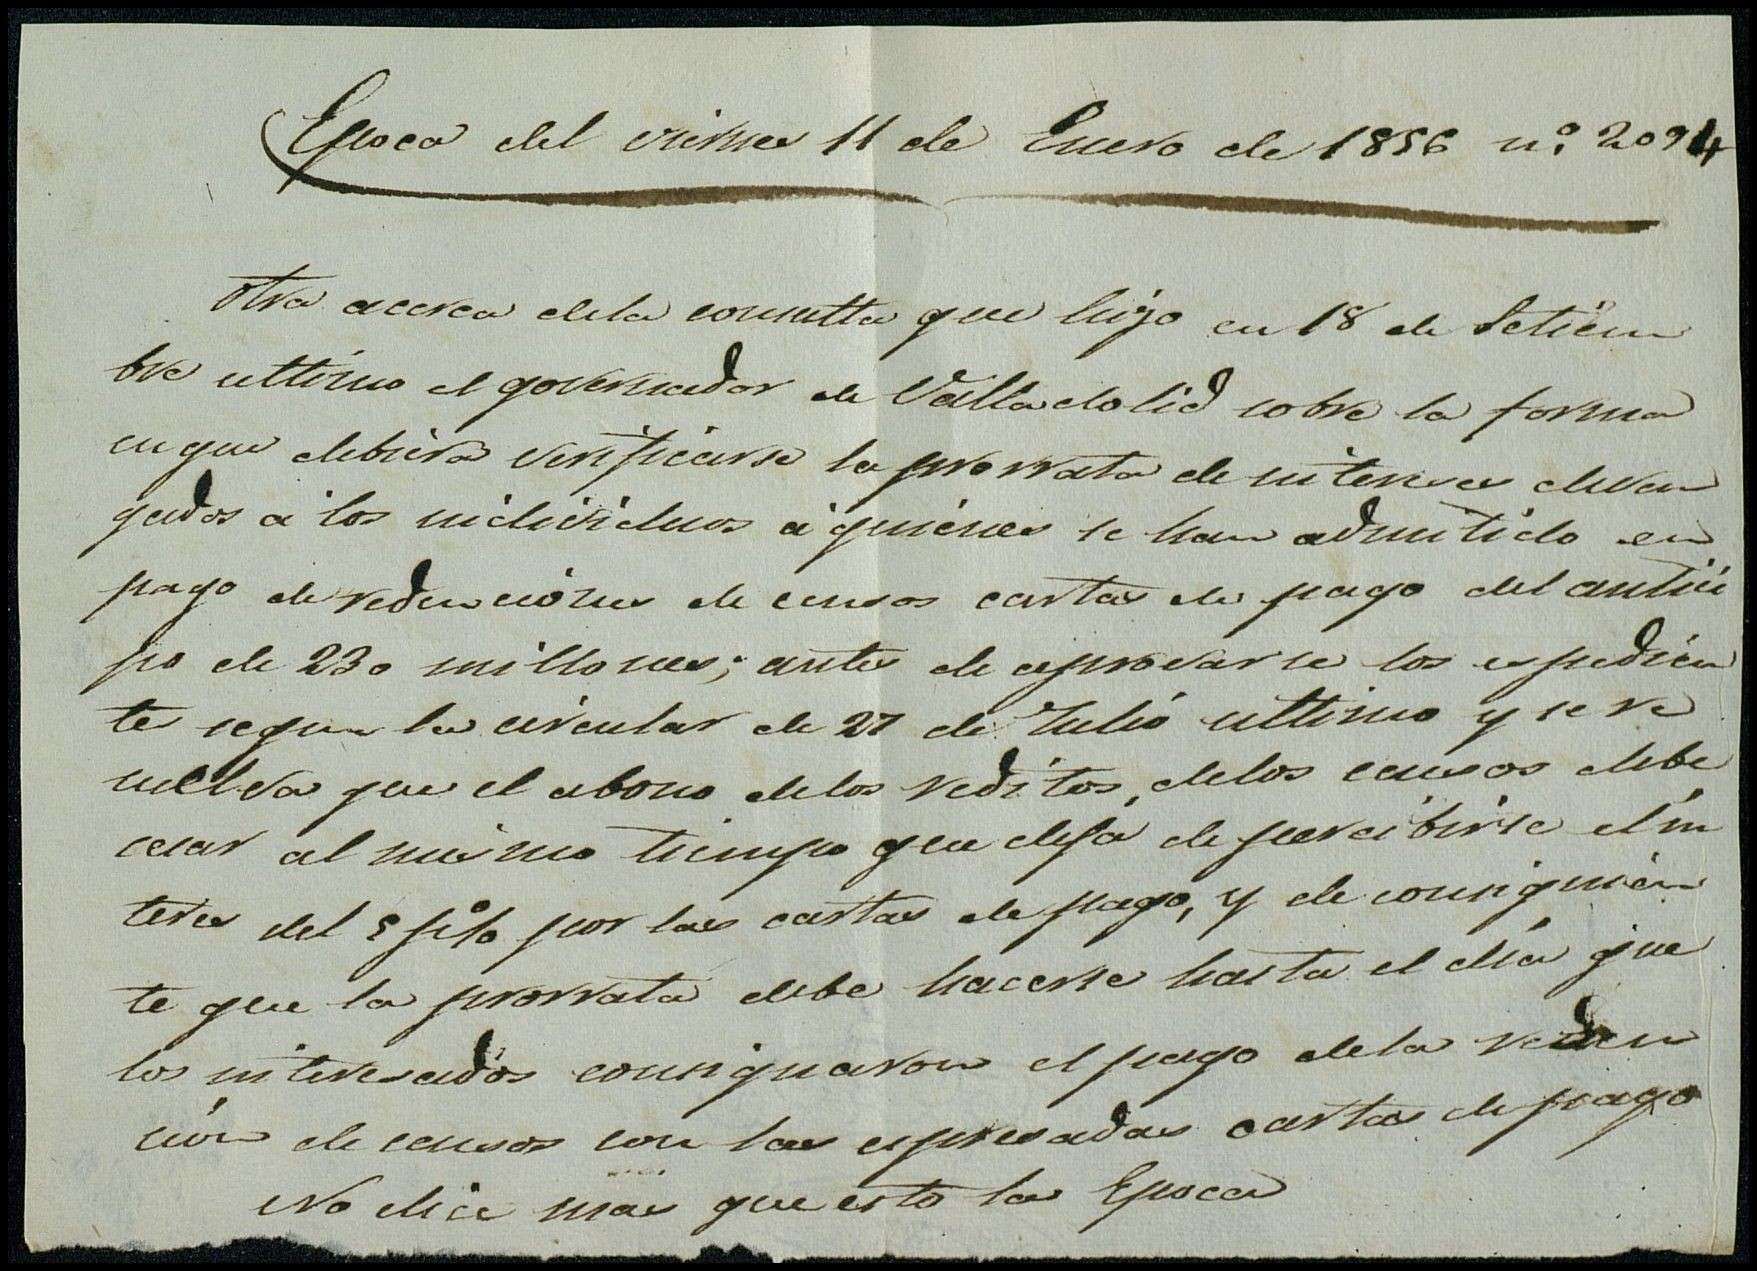 Epoca del viernes 11 de Enero de 1856 nº 2094
Otra acerca dela consulta que hizo en 18 de Setiem
bre ultimo el governador de Valladolid sobre la forma
enque debiera verificarse la prorrata de intereses deven
gados a los individuos aquienes se han admitido en
pago de redenciones de censos cartas de pago del antici
po de 230 millones; antes de aprovarse los espedien
tes segun la circular de 27 de Julio ultimo y se re
suelva que el abono delos reditos, delos censos debe
cesar al mismo tiempo que deja de percibirse el in
teres del 5 p% por las cartas de pago, y de consiguien
te que la prorrata debe hacerse hasta el dia que
los interesados consignaron el pago dela reden
cion de censos con las espresadas cartas de pago
No dice mas que esto la Epoca